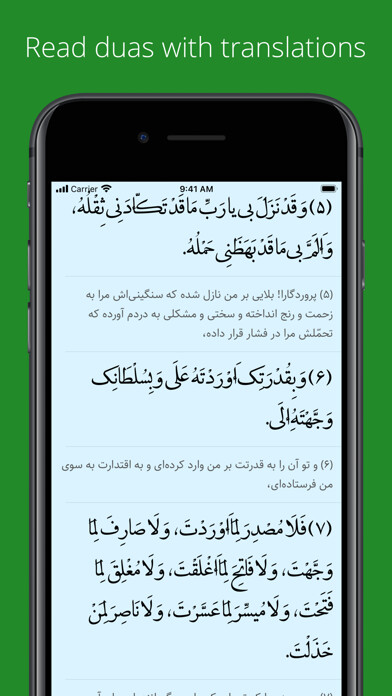 Read duas with translations
Carrier 9:41 AM
(۵) وَ قَدْ نَزَلَ بی یا رَبِّ مَا قَدْ تَکَّأدَنِی ثِقْلُهُ،
وَ أَلَمَّ بی مَا قَدْ بَهَظَنِی حَمْلُهُ.
(۵) پروردگارا! بلایی بر من نازل شده که سنگینی‌اش مرا به
زحمت و رنج انداخته و سختی و مشکلی به دردم آورده که
تحمّلش مرا در فشار قرار داده،
(۶) وَ بِقُدْرَتِکَ أَوْرَدْتَهُ عَلَیَّ وَ بِسُلْطَانِکَ
وَجَّهْتَهُ إِلَیَّ.
(۶) و تو آن را به قدرتت بر من وارد کرده‌ای و به اقتدارت به سوی
من فرستاده‌ای،
(۷) فَلَا مُصْدِرَ لِمَا أَوْرَدْتَ، وَ لَا صَارِفَ لِمَا
وَجَّهْتَ، وَ لَا فَاتِحَ لِمَا أَغْلَقْتَ، وَ لَا مُغْلِقَ لِمَا
فَتَحْتَ، وَ لَا مُیَسِّرَ لِمَا عَسَّرْتَ، وَ لَا نَاصِرَ لِمَنْ
خَذَلْتَ.